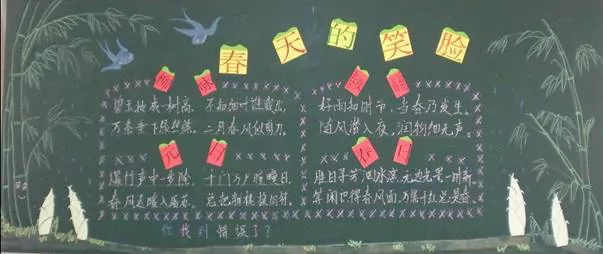 春天的笑脸
咏柳
碧玉妆成一树高，不知细叶谁裁出，
万条垂下丝绦，二月春风似剪刀。
好雨知时节，当春乃发生。
随风潜入夜，润物细无声。
元日
爆竹声中一岁除，千门万户曈曈日，
春风送暖入屠苏，总把新桃换旧符。
春日
胜日寻芳泗水滨，无边光景一时新，
等闲识得春风面，万紫千红总是春。
你找到错误了？